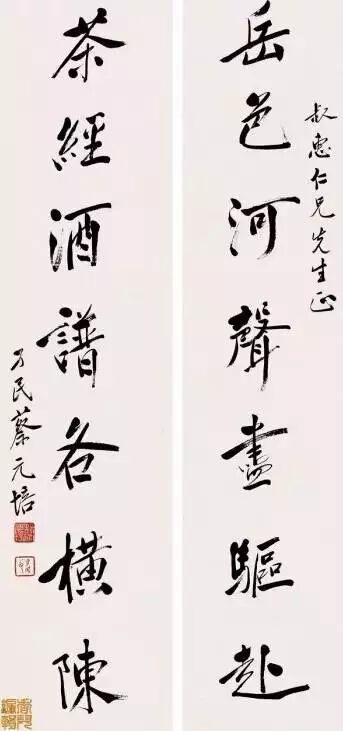 叔惠仁兄先生正
岳色河聲盡驅赴
茶經酒譜各橫陳
孑民蔡元培